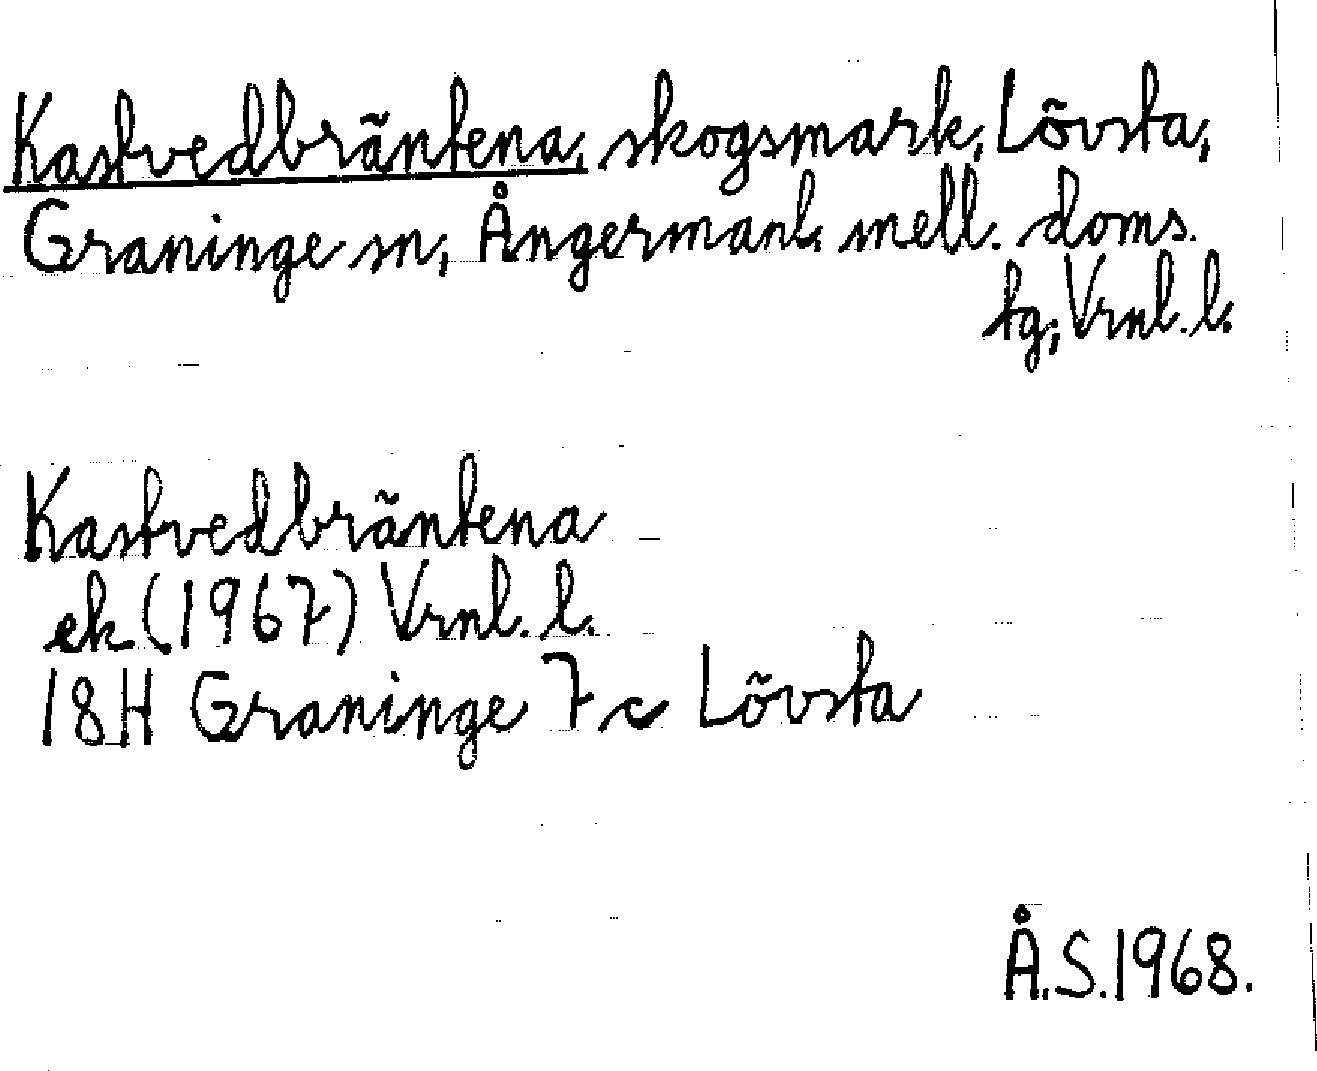 Kastvedbräntena, skogsmark, Lövsta,
Graninge sn, Ångermanl. mell. doms.
tg, Vrnl. l.
Kastvedbräntena
ek (1967) Vrnl. l.
18H Graninge 7c Lövsta
Å.S.1968.